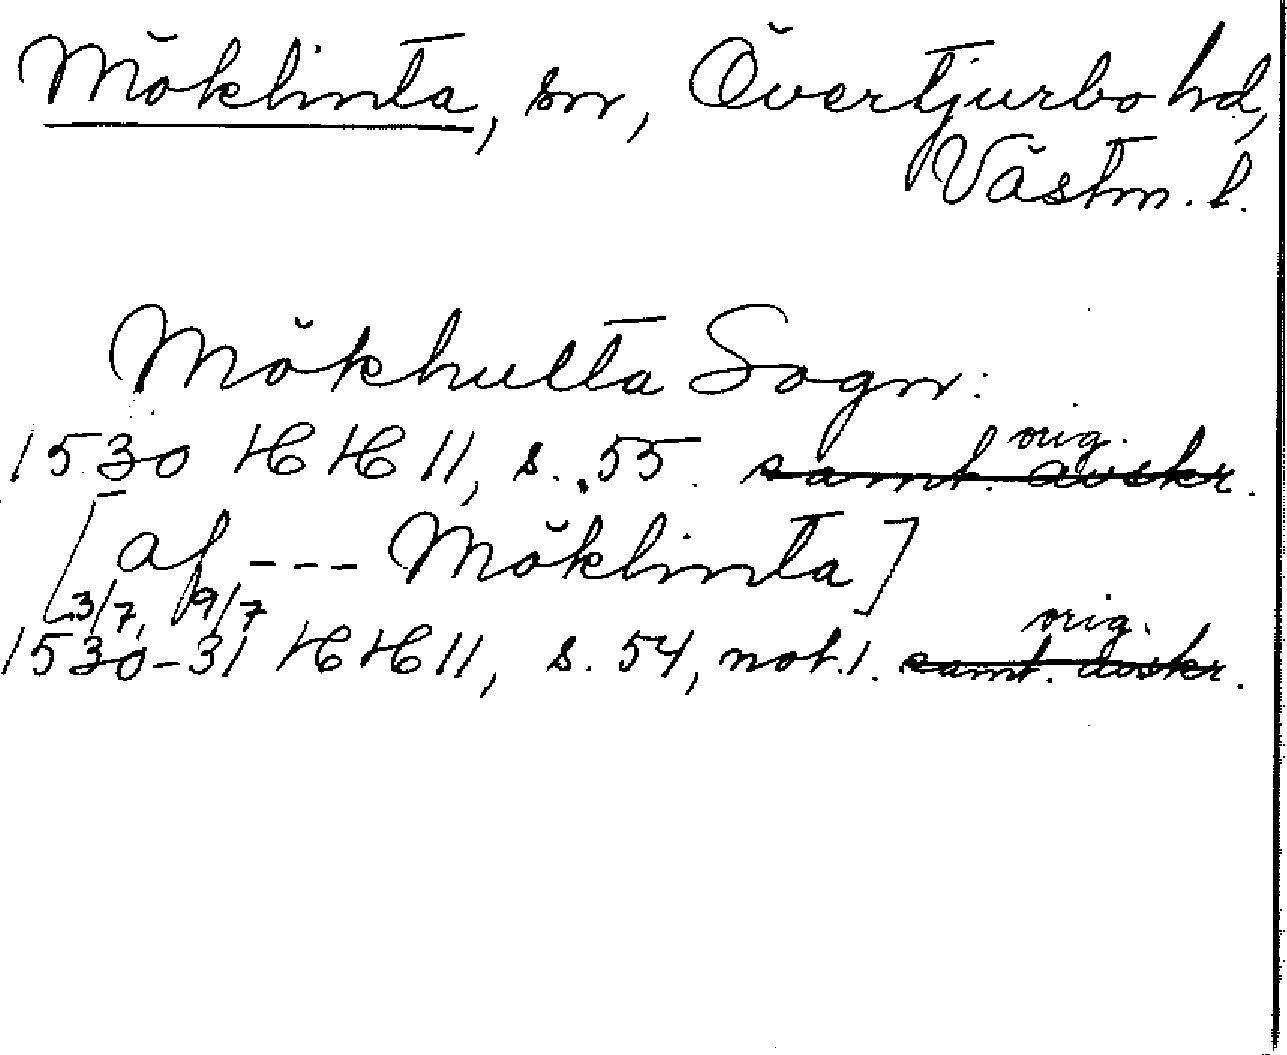 Möklinta, sn, Övertjurbo hd,
Västm. l.
Mökhutta Sogn:
orig.
1530 HH 11, s. 55. samt. avskr.
[af --- Möklinta]
3/7, 9/7 orig.
1530-31 HH 11, s. 54, not. 1. samt. avskr.